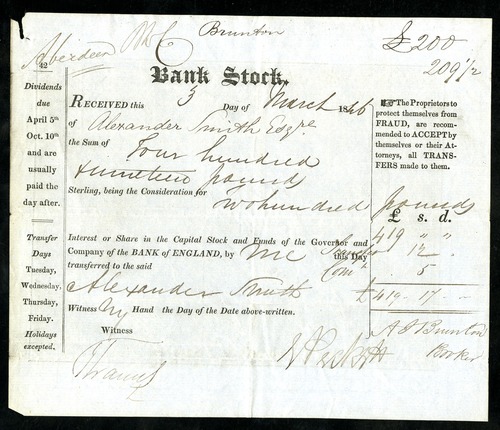 Aberdeen
Brunton
£200
209 1/2
42
Bank Stock.
Dividends
due
April 5th
Oct. 10th
and are
usually
paid the
day after.
RECEIVED this 3 Day of March 1846
of Alexander Smith Esqre
the Sum of Four hundred
& nineteen pounds
Sterling, being the Consideration for
Two hundred pounds
The Proprietors to
protect themselves from
FRAUD, are recom-
mended to ACCEPT by
themselves or their At-
torneys, all TRANS-
FERS made to them.
£ s. d.
419 " "
12
5
£419 - 17 -
Transfer
Days
Tuesday,
Wednesday,
Thursday,
Friday.
Holidays
excepted.
Interest or Share in the Capital Stock and Funds of the Governor and
Company of the BANK of ENGLAND, by me this Day
transferred to the said
Alexander Smith
Witness my Hand the Day of the Date above-written.
Witness
A J Brunton
Broker